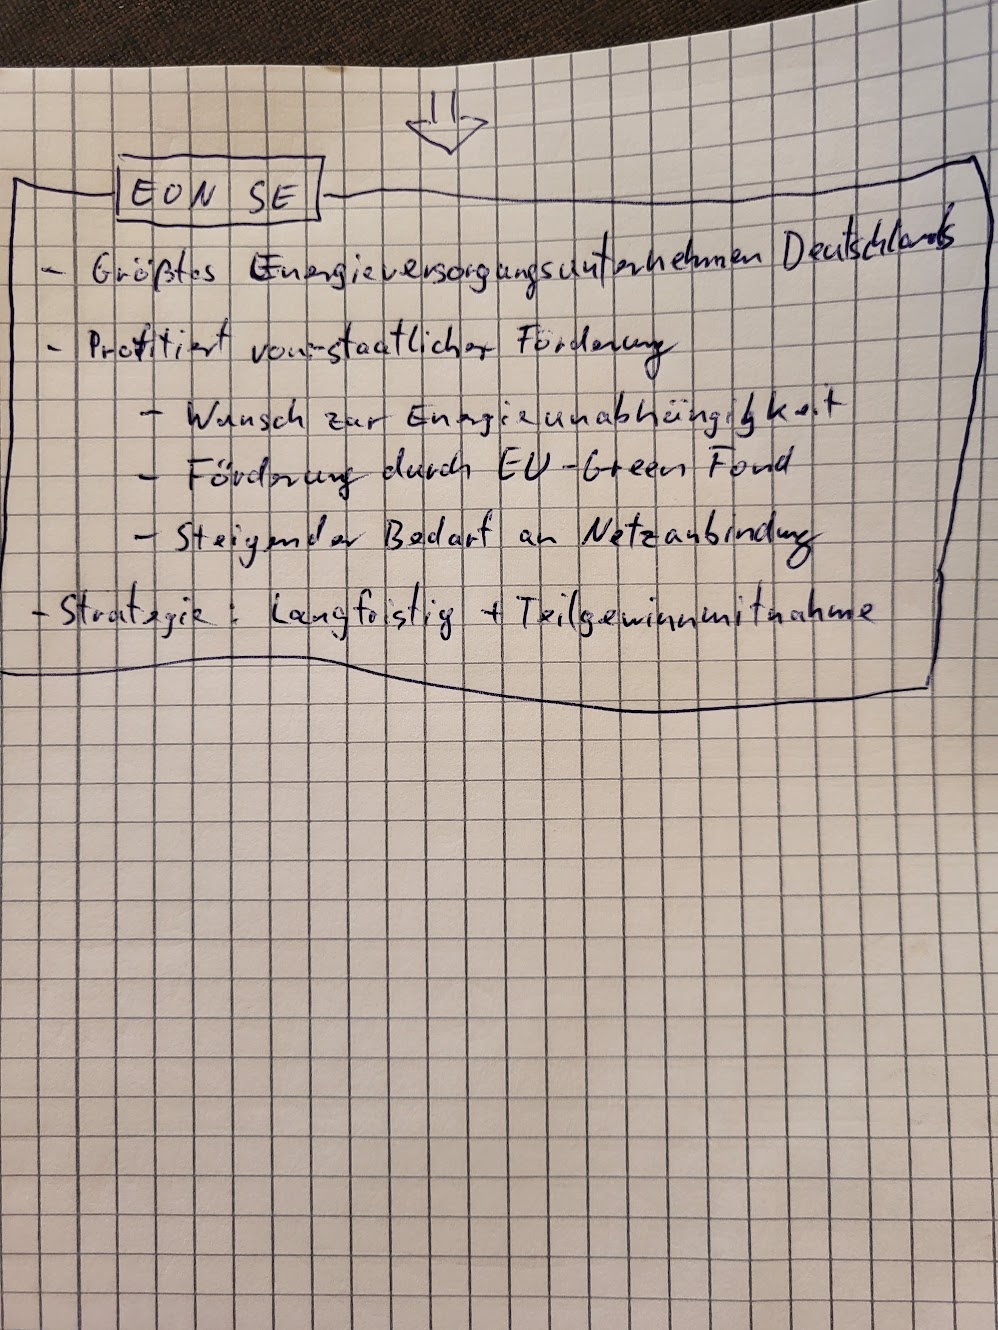 EON SE
- Größtes Energieversorgungsunternehmen Deutschlands
- Profitiert von staatlicher Förderung
- Wunsch zur Energieunabhängigkeit
- Förderung durch EU-Green Fond
- Steigender Bedarf an Netzanbindung
- Strategie: Langfristig + Teilgewinnmitnahme